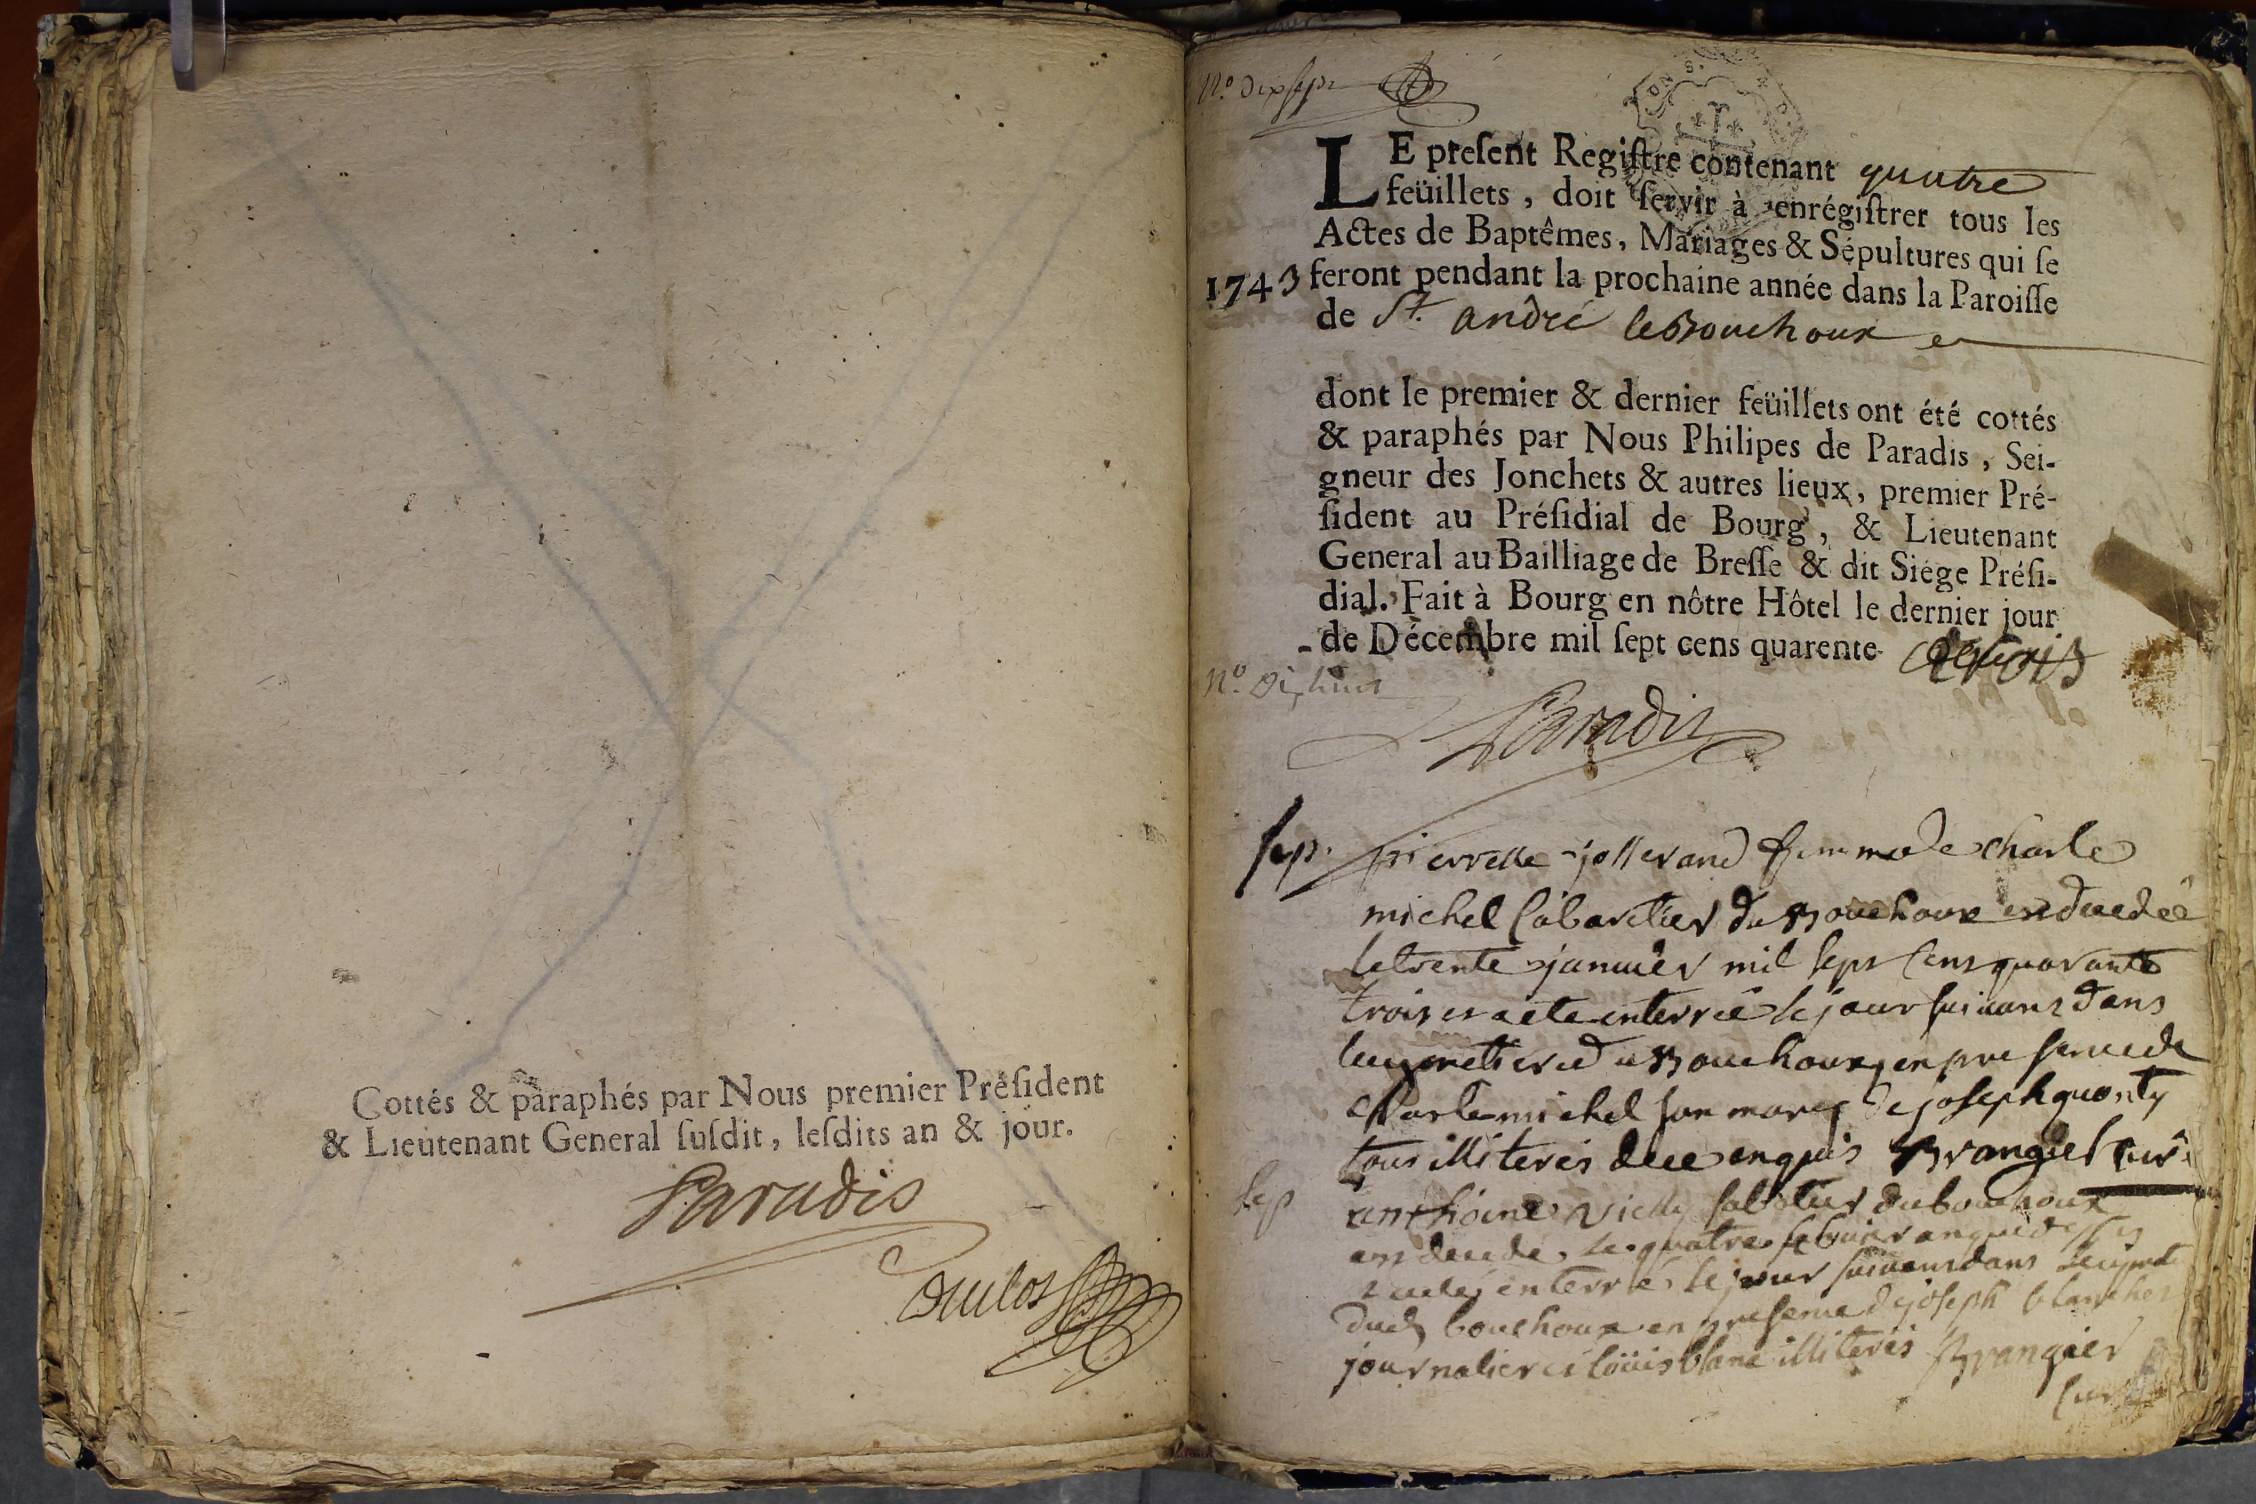 Cottés & paraphés par Nous premier Préſident
& Lieutenant General ſuſdit, leſdits an & jour.
Paradis
N.º dix sept
LE preſent Regiſtre contenant quatre
feüillets, doit ſervir à enrégiſtrer tous les
Actes de Baptêmes, Mariages & Sépultures qui ſe
1743 feront pendant la prochaine année dans la Paroiſſe
de St. andré le Bouchoux
dont le premier & dernier feüillets ont été cottés
& paraphés par Nous Philipes de Paradis, Sei-
gneur des Jonchets & autres lieux, premier Pré-
ſident au Préſidial de Bourg, & Lieutenant
General au Bailliage de Breſſe & dit Siége Préſi-
dial. Fait à Bourg en nôtre Hôtel le dernier jour
de Décembre mil ſept cens quarente
N.º Dixhuit
Paradis
sep. pierrette femme de Charle
michel Cabaretier du Bouchoux est decedeé
le trente janvier mil sept cens quarante
trois et a ete enterreé le jour suivant dans
le cymetiere du Bouchoux en presence de
Charle michel son mary de joseph
tous illiteres de ce enquis Brangier Curé
sep anthoine sabotier du bouchoux
est decede le quatre febvrier
enterré le jour suivant dans le
dud bouchoux en presence de joseph
journalier et loüis blanc illiteres Brangier
Curé